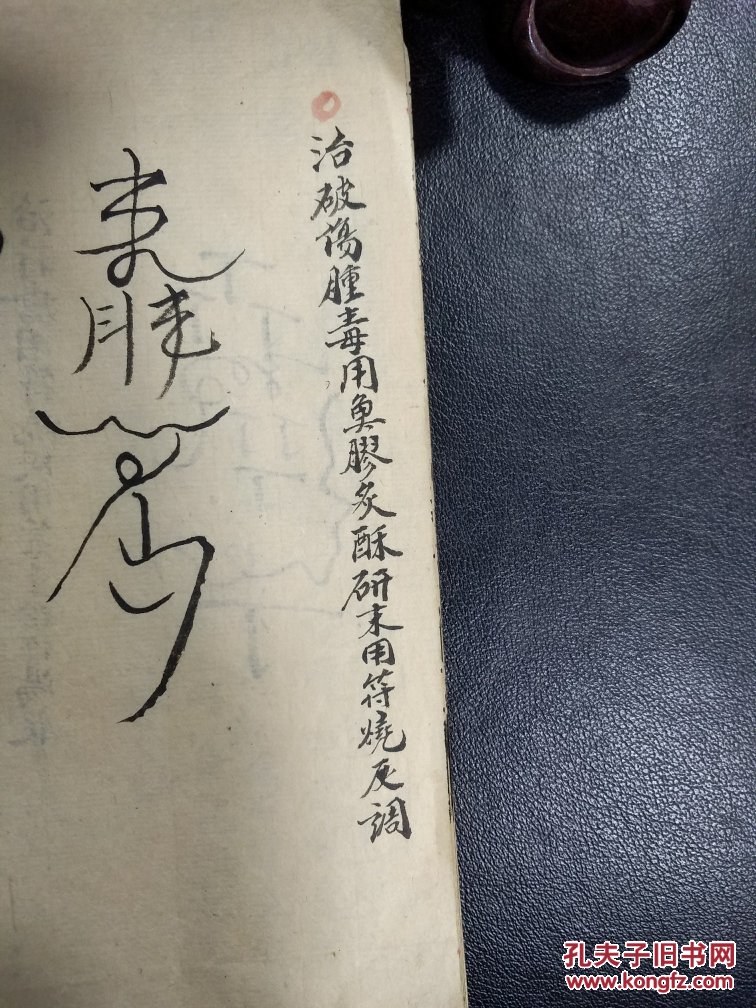 治破傷腫毒用魚膠炙酥研末用符燒灰調
孔夫子旧书网
www.kongfz.com